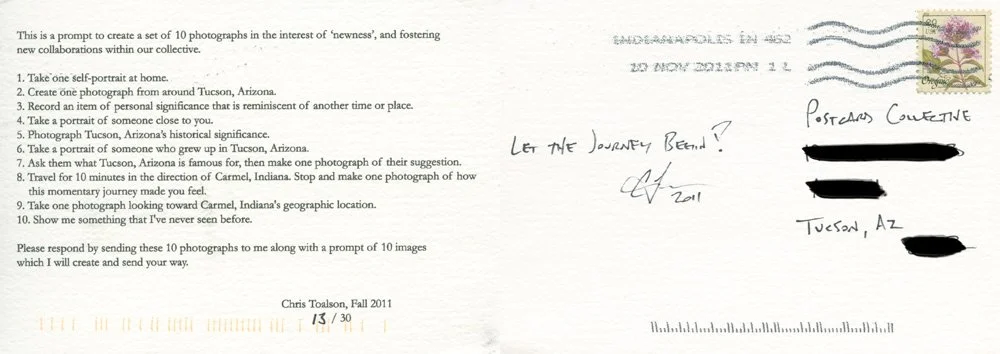 This is a prompt to create a set of 10 photographs in the interest of 'newness', and fostering
new collaborations within our collective.
1. Take one self-portrait at home.
2. Create one photograph from around Tucson, Arizona.
3. Record an item of personal significance that is reminiscent of another time or place.
4. Take a portrait of someone close to you.
5. Photograph Tucson, Arizona's historical significance.
6. Take a portrait of someone who grew up in Tucson, Arizona.
7. Ask them what Tucson, Arizona is famous for, then make one photograph of their suggestion.
8. Travel for 10 minutes in the direction of Carmel, Indiana. Stop and make one photograph of how
this momentary journey made you feel.
9. Take one photograph looking toward Carmel, Indiana's geographic location.
10. Show me something that I've never seen before.
Please respond by sending these 10 photographs to me along with a prompt of 10 images
which I will create and send your way.
Chris Toalson, Fall 2011
13 / 30
INDIANAPOLIS IN 462
10 NOV 2011 PM 1 L
LET THE JOURNEY BEGIN!
2011
POSTCARD COLLECTIVE
TUCSON, AZ